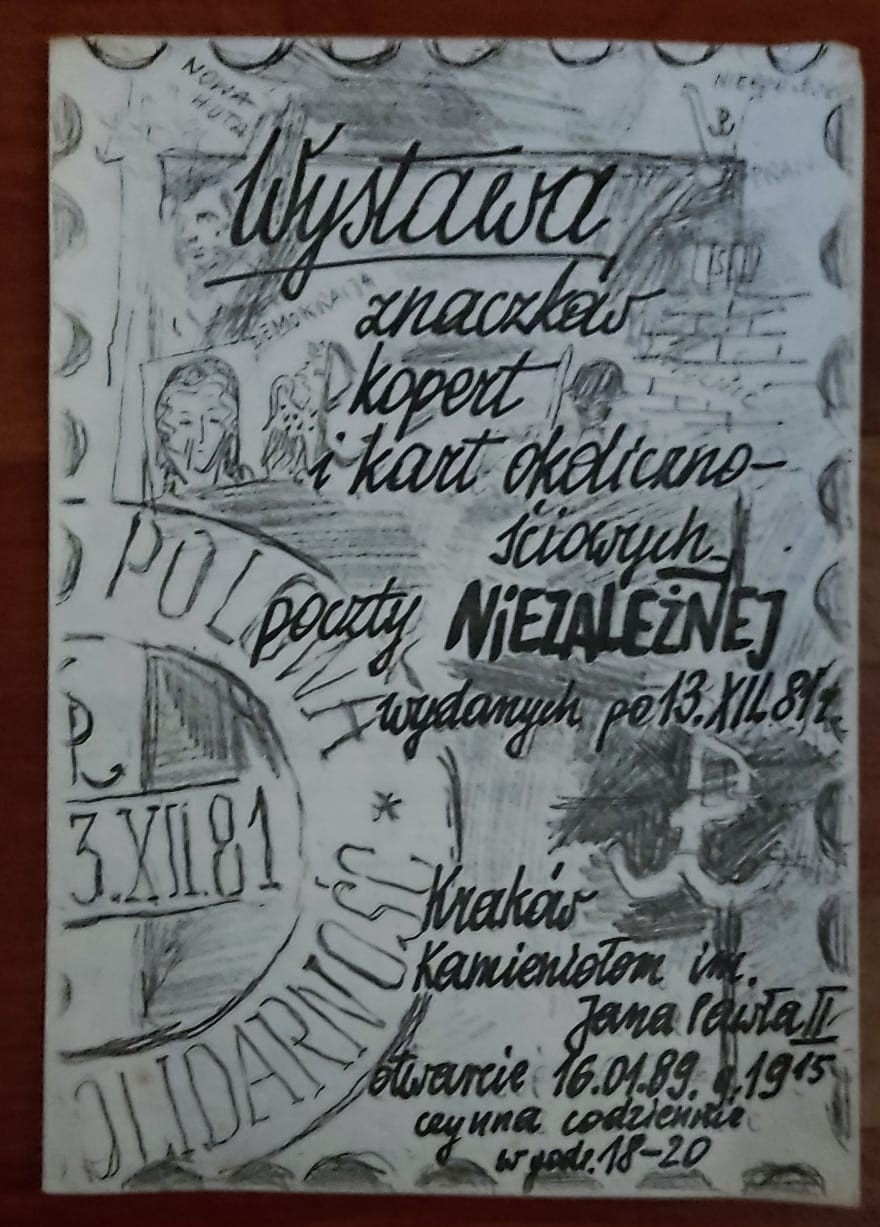 NOWA
HUTA
Wystawa
DEMOKRACJA
znaczków
kopert
i kart okoliczno-
ściowych
poczty NiEZALEŻNEJ
wydanych po 13.XII.81r.
POLOWA
3.XII.81
*
SOLIDARNOŚĆ
Kraków
Kamieniołom im.
Jana Pawła II
otwarcie 16.01.89. g.19 15
czynna codziennie
w godz. 18-20